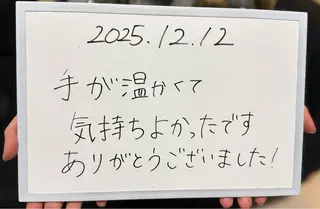 2025.12.12
手が温かくて
気持ちよかったです
ありがとうございました!